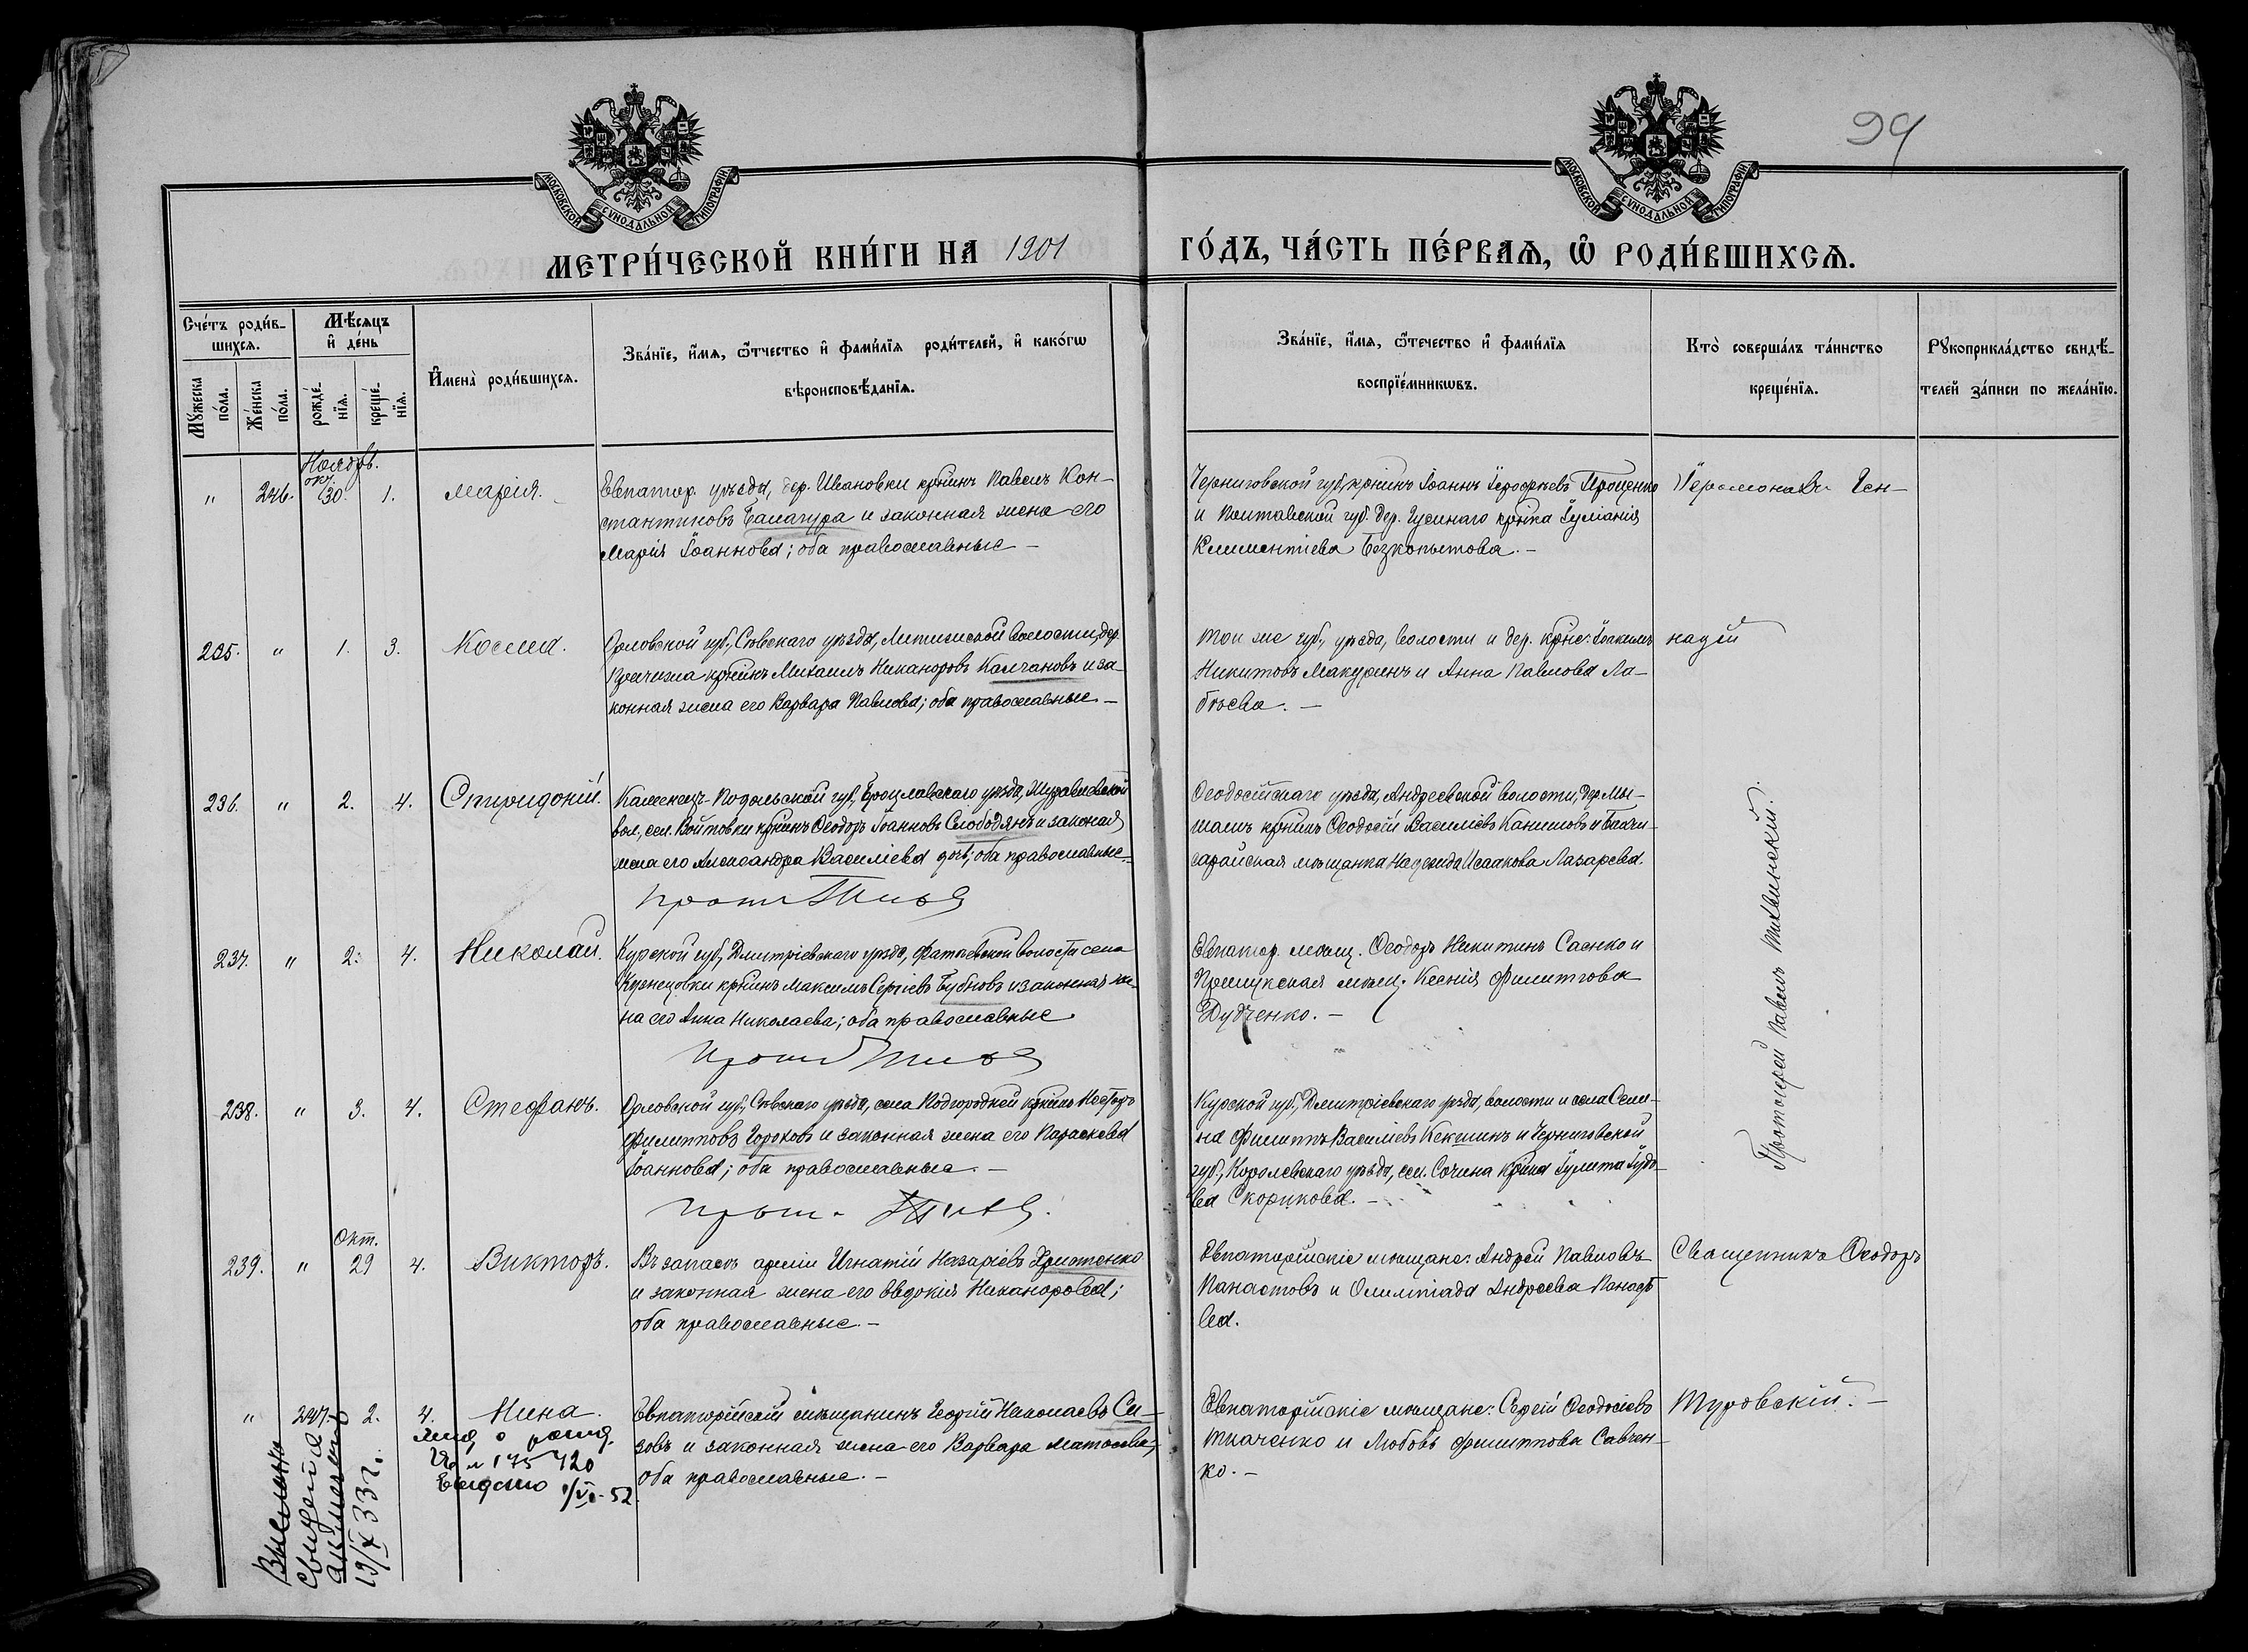 99
МОСКОВСКОЙ СѴНОДАЛЬНОЙ ТИПОГРАФІИ
МОСКОВСКОЙ СѴНОДАЛЬНОЙ ТИПОГРАФІИ
МЕТРИ́ЧЕСКОЙ КНИ́ГИ НА 1901 ГО́ДЪ, ЧА́СТЬ ПЕ́РВАѦ, Ѡ҆ РОДИ́ВШИХСѦ.
Сче́тъ роди́в-
шихсѧ.
Мѣ́сѧцъ
и҆ де́нь
Мꙋ́жеска
по́ла.
Же́нска
по́ла.
рожде́-
нїѧ.
креще́-
нїѧ.
И҆мена̀ роди́вшихсѧ.
Зва́нїе, и҆́мѧ, ѻ҆́тчество и҆ фами́лїѧ роди́телей, и҆ како́гѡ
вѣроисповѣ́данїѧ.
Зва́нїе, и҆́мѧ, ѻ҆́течество и҆ фами́лїѧ
воспрїе́мникѡвъ.
Кто̀ соверша́лъ та́инство
креще́нїѧ.
Рꙋкоприкла́дство свидѣ́-
телей за́писи по жела́нїю.
Ноябрь.
окт.
" 246. 30. 1. Марія.
Евпатор. уѣзда, дер. Ивановки кр-нинъ Павелъ Кон-
стантиновъ Балагура и законная жена его
Марія Іоаннова; оба православные –
Черниговской губ. кр-нинъ Іоаннъ Іерофеевъ Проценко
и Полтавской губ. дер. Гусинаго кр-нка Іуліанія
Климентіева Безкопытова. –
Іеромонахъ Ген-
235. " 1. 3. Косма.
Орловской губ., Сѣвскаго уѣзда, Литижской волости, дер.
кр-нинъ Михаилъ Никаноровъ Колчановъ и за-
конная жена его Варвара Павлова; оба православные –
Той же губ., уѣзда, волости и дер. кр-не: Іоакимъ
Никитовъ Макуринъ и Анна Павлова Ла-
бѣева. –
надій
236. " 2. 4. Спиридоній.
Каменецъ-Подольской губ., Брацлавскаго уѣзда, Журавлевской
вол., сел. Войтовки кр-нинъ Ѳеодоръ Іоанновъ Слободянъ и законная
жена его Александра Василіева; оба православные.
Ѳеодосійскаго уѣзда, Андреевской волости,
кр-нинъ Ѳеодосій Василіевъ и Бахчи-
сарайская мѣщанка Надежда Исаакова Лазарева.
237. " 2. 4. Николай.
Курской губ., Дмитріевскаго уѣзда, Фатѣевской волости села
Кузнецовки кр-нинъ Максимъ Сергіевъ Бубновъ и законная же-
на его Анна Николаева; оба православные.
Евпатор. мѣщ. Ѳеодоръ Никитинъ Саенко и
мѣщ. Ксенія Филиппова
Дудченко. –
Протоіерей Павелъ Тихвинскій.
238. " 3. 4. Стефанъ.
Орловской губ., Сѣвскаго уѣзда, села Подгородней кр-нинъ Несторъ
Филипповъ Гороховъ и законная жена его Параскева
Іоаннова; оба православные. –
Курской губ., Дмитріевскаго уѣзда, волости и села Селина
Филиппъ Василіевъ Кекшинъ и Черниговской
губ., уѣзда, сел. кр-нка Іулита
Скорикова. –
Окт.
239. " 29 4. Викторъ.
Въ запасѣ арміи Игнатій Назаріевъ Христенко
и законная жена его Евдокія Никанорова;
оба православные. –
Евпаторійскіе мѣщане: Андрей Павловъ
Панаотовъ и Олимпіада Андреева Панаото
ва.
Священникъ Ѳеодоръ
" 247. 2. 4. Нина.
Евпаторійскій мѣщанинъ Георгій Николаевъ Си-
зовъ и законная жена его Варвара Матвеева;
оба православные. –
Евпаторійскіе мѣщане: Сергій Ѳеодосіевъ
Ткаченко и Любовь Филиппова Савчен-
ко. –
Туровскій. –
о рожд.
175420
52
19/X 33 г.